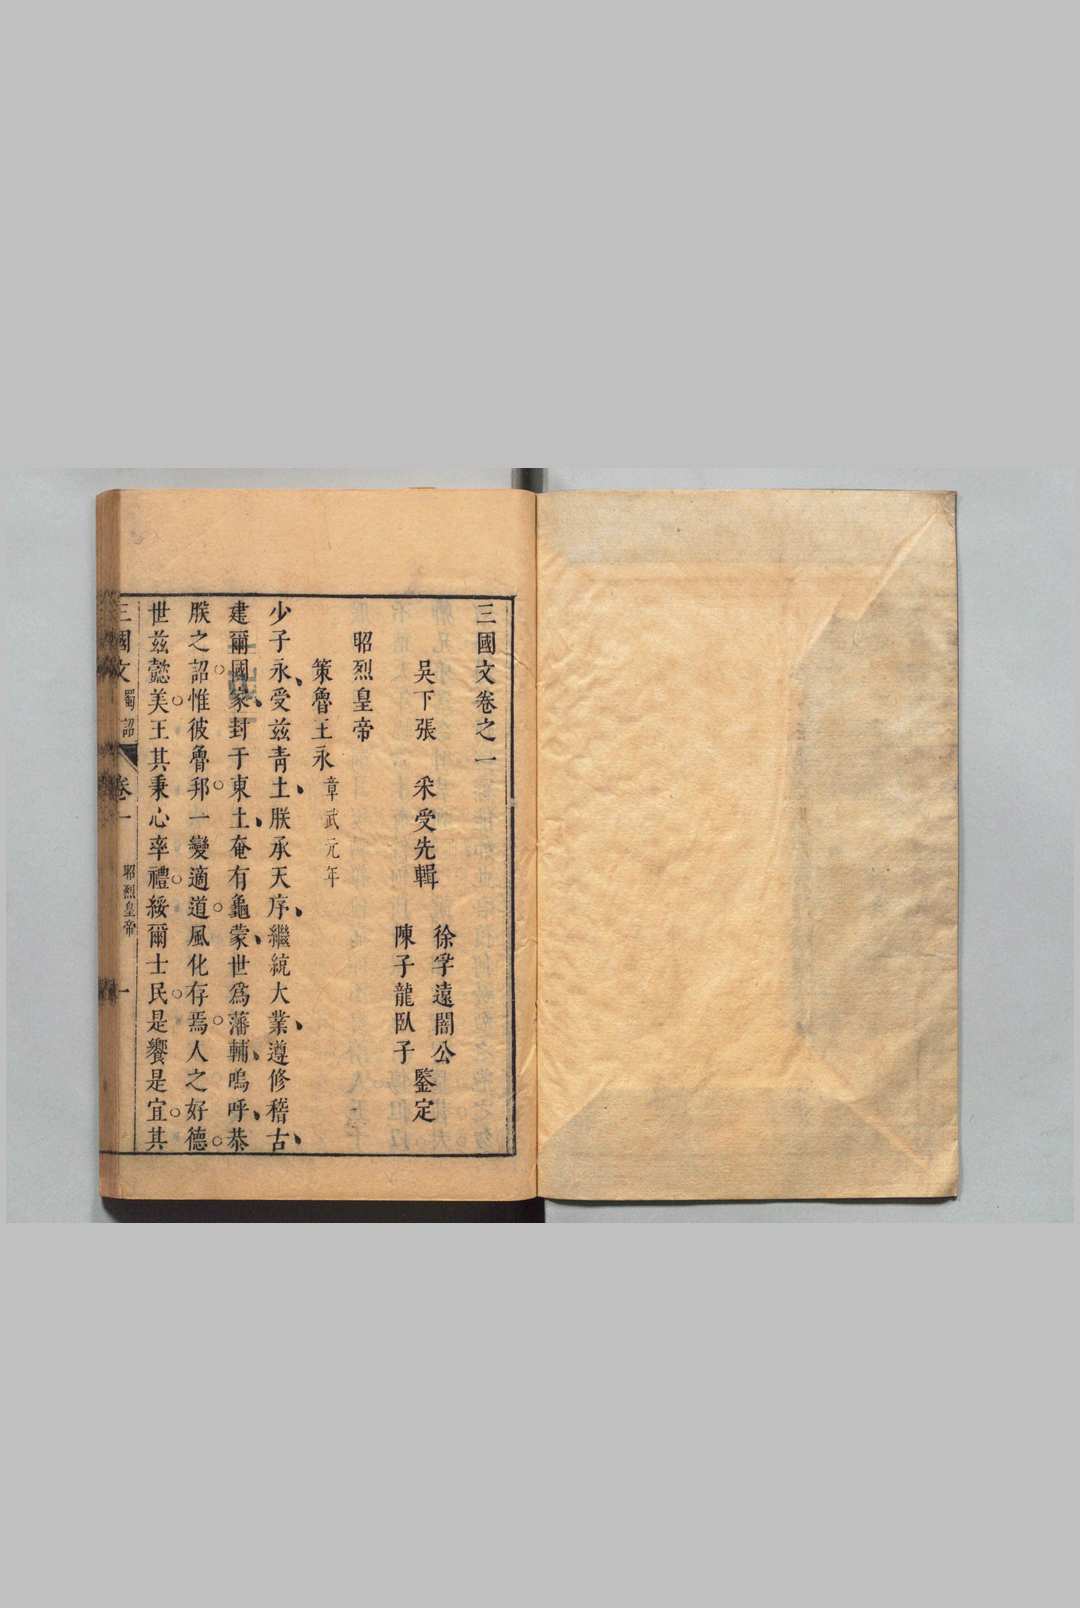 三國文卷之一
吳下張　采受先輯
徐孚遠闇公
陳子龍臥子
鑒定
昭烈皇帝
策魯王永 章武元年
少子永受茲靑土朕承天序繼統大業遵修稽古
建爾國家封于東土奄有龜蒙世爲藩輔嗚呼恭
朕之詔惟彼魯邦一變適道風化存焉人之好德
世茲懿美王其秉心率禮綏爾士民是饗是宜其
三國文 蜀詔 卷一 昭烈皇帝 一